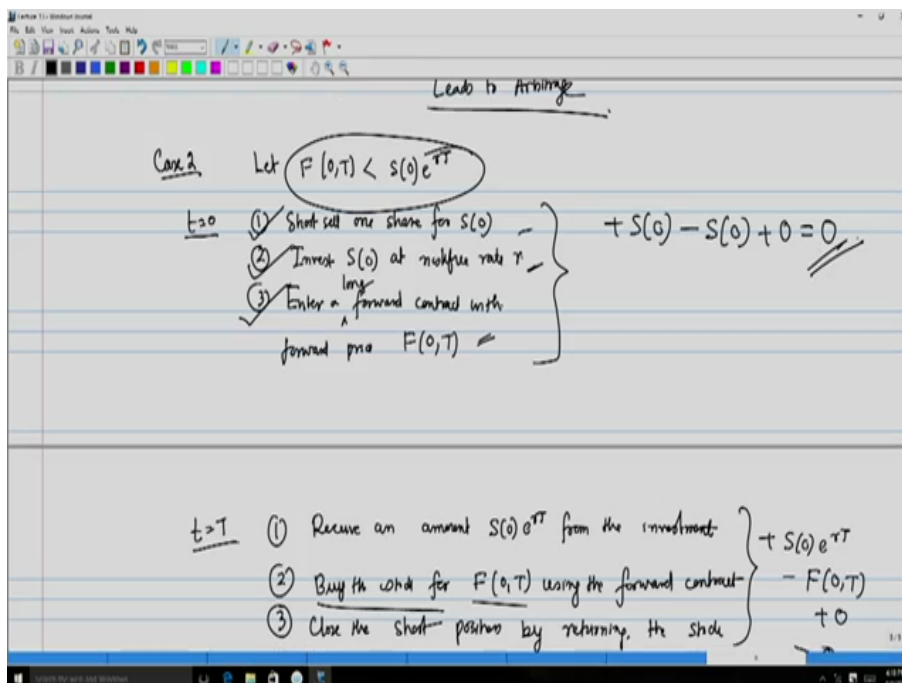 Lecture 13 - Windows Journal
File Edit View Insert Actions Tools Help
B I
Leads to Arbitrage
Case 2 Let F(0,T) < S(0)e^{rT}
t=0 ① Short sell one share for S(0) + S(0) - S(0) + 0 = 0
② Invest S(0) at riskfree rate r
long
③ Enter a ^ forward contract with
forward price F(0,T)
t=T ① Receive an amount S(0)e^{rT} from the investment + S(0)e^{rT}
② Buy the stock for F(0,T) using the forward contract - F(0,T)
③ Close the short position by returning the stock + 0